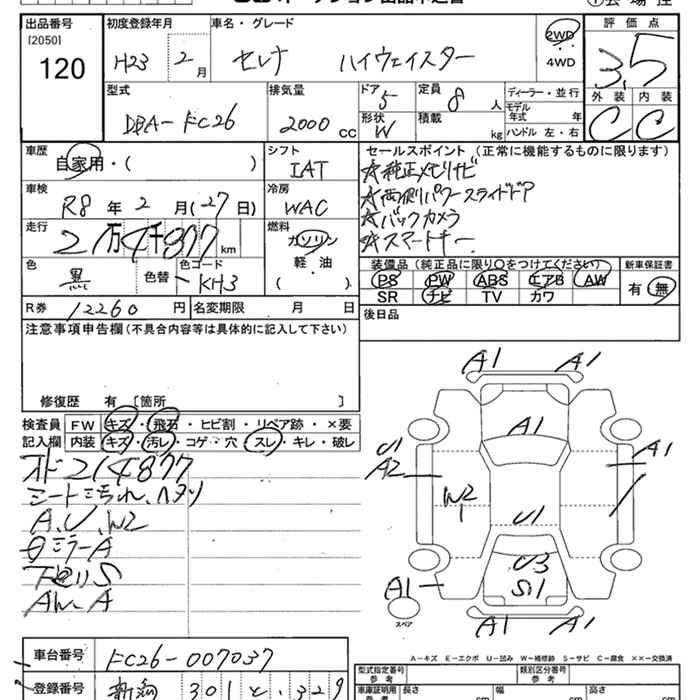 出品番号 初度登録年月 車名・グレード 評価点
[2050]
120 H23 2月 セレナ ハイウェイスター 2WD 4WD 3.5
型式 排気量 ドア 5 定員 8人 ディーラー・並行 外装 内装
DBA-FC26 2000cc 形状 W 積載 kg モデル年式 年 C C
ハンドル 左・右
車歴 シフト セールスポイント (正常に機能するものに限ります)
自家用・( ) IAT ☆純正メモリナビ
車検 冷房 ☆両側パワースライドドア
R8年2月(27日) WAC ☆バックカメラ
走行 燃料 ☆スマートキー
21万4千877km ガソリン
軽・油
( )
色 黒 色替 色コード KH3
装備品 (純正品に限り○をつけてください) 新車保証書
PS PW ABS エアB AW 有 無
SR ナビ TV カワ
R券 12260円 名変期限 月 日 後日品
注意事項申告欄(不具合内容等は具体的に記入して下さい)
修復歴 有 [箇所 ]
検査員 FW キズ・飛石・ヒビ割・リペア跡・×要
記入欄 内装 キズ・汚レ・コゲ・穴・スレ・キレ・破レ
214877
シート汚れ、ヘタリ
A、U、W2
ミラーA
S
AW A
A1 A1
A1
U1 A1
A2
W2
1
U1
U3
S1
A1
スペア
A1 A1
A-キズ E-エクボ U-凹み W-補修跡 S-サビ C-腐食 ××-交換済
車台番号 FC26-007037
登録番号 新潟 301 と・329
型式指定番号 参考 類別区分番号 参考
車庫証明用 長さ cm 幅 cm 高さ cm